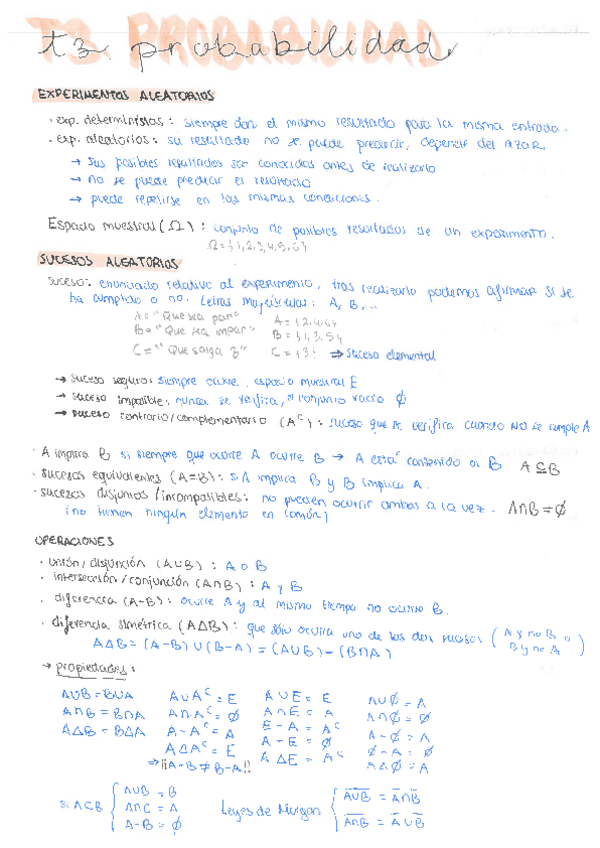 T3. PROBABILIDAD
t3. probabilidad
EXPERIMENTOS ALEATORIOS
· exp. deterministas: siempre dan el mismo resultado para la misma entrada.
· exp. aleatorios: su resultado no se puede predecir, depende del azar.
→ Sus posibles resultados son conocidos antes de realizarlo
→ no se puede predecir el resultado
→ puede repetirse en las mismas condiciones.
Espacio muestral (Ω): conjunto de posibles resultados de un experimento.
Ω = {1,2,3,4,5,6}
SUCESOS ALEATORIOS
suceso: enunciado relativo al experimento, tras realizarlo podemos afirmar si se
ha cumplido o no. Letras mayúsculas: A, B, ...
A = "Que sea par" A = {2,4,6}
B = "Que sea impar" B = {1,3,5}
C = "Que salga 3" C = {3} ⇒ Suceso elemental
→ suceso seguro: siempre ocurre, espacio muestral E
→ suceso imposible: nunca se verifica, el conjunto vacío ∅
→ suceso contrario/complementario (Aᶜ): suceso que se verifica cuando NO se cumple A
· A implica B si siempre que ocurre A ocurre B → A está contenido en B A ⊆ B
· sucesos equivalentes (A=B): si A implica B y B implica A.
· sucesos disjuntos/incompatibles: no pueden ocurrir ambos a la vez. A∩B = ∅
(no tienen ningún elemento en común)
OPERACIONES
· unión/disjunción (A∪B): A o B
· intersección/conjunción (A∩B): A y B
· diferencia (A-B): ocurre A y al mismo tiempo no ocurre B.
· diferencia simétrica (AΔB): que sólo ocurra uno de los dos sucesos (A y no B o
B y no A)
AΔB = (A-B) ∪ (B-A) = (A∪B) - (B∩A)
→ propiedades:
A∪B = B∪A A∪Aᶜ = E A∪E = E A∪∅ = A
A∩B = B∩A A∩Aᶜ = ∅ A∩E = A A∩∅ = ∅
AΔB = BΔA A-Aᶜ = A E-A = Aᶜ A-∅ = A
AΔAᶜ = E A-E = ∅ ∅-A = ∅
⇒ ¡¡A-B ≠ B-A!! AΔE = Aᶜ AΔ∅ = A
si A⊂B { A∪B = B
A∩C = A
A-B = ∅
Leyes de Morgan { A̅∪̅B̅ = A̅∩B̅
A̅∩̅B̅ = A̅∪B̅